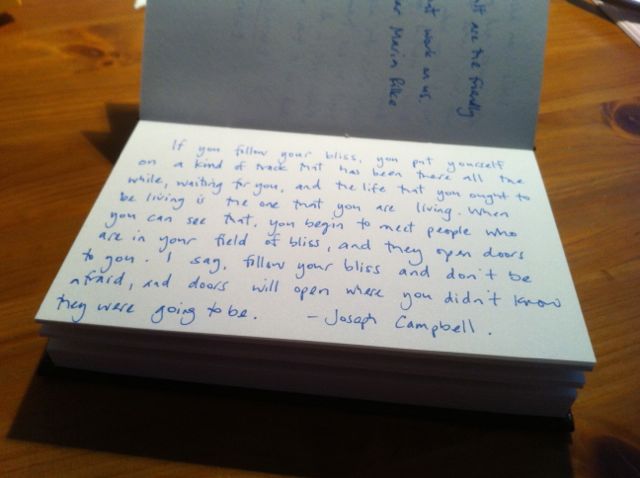 are the friendly
work on us,
Maria Rilke
If you follow your bliss, you put yourself
on a kind of track that has been there all the
while, waiting for you, and the life that you ought to
be living is the one that you are living. When
you can see that, you begin to meet people who
are in your field of bliss, and they open doors
to you. I say, follow your bliss and don't be
afraid, and doors will open where you didn't know
they were going to be. - Joseph Campbell.